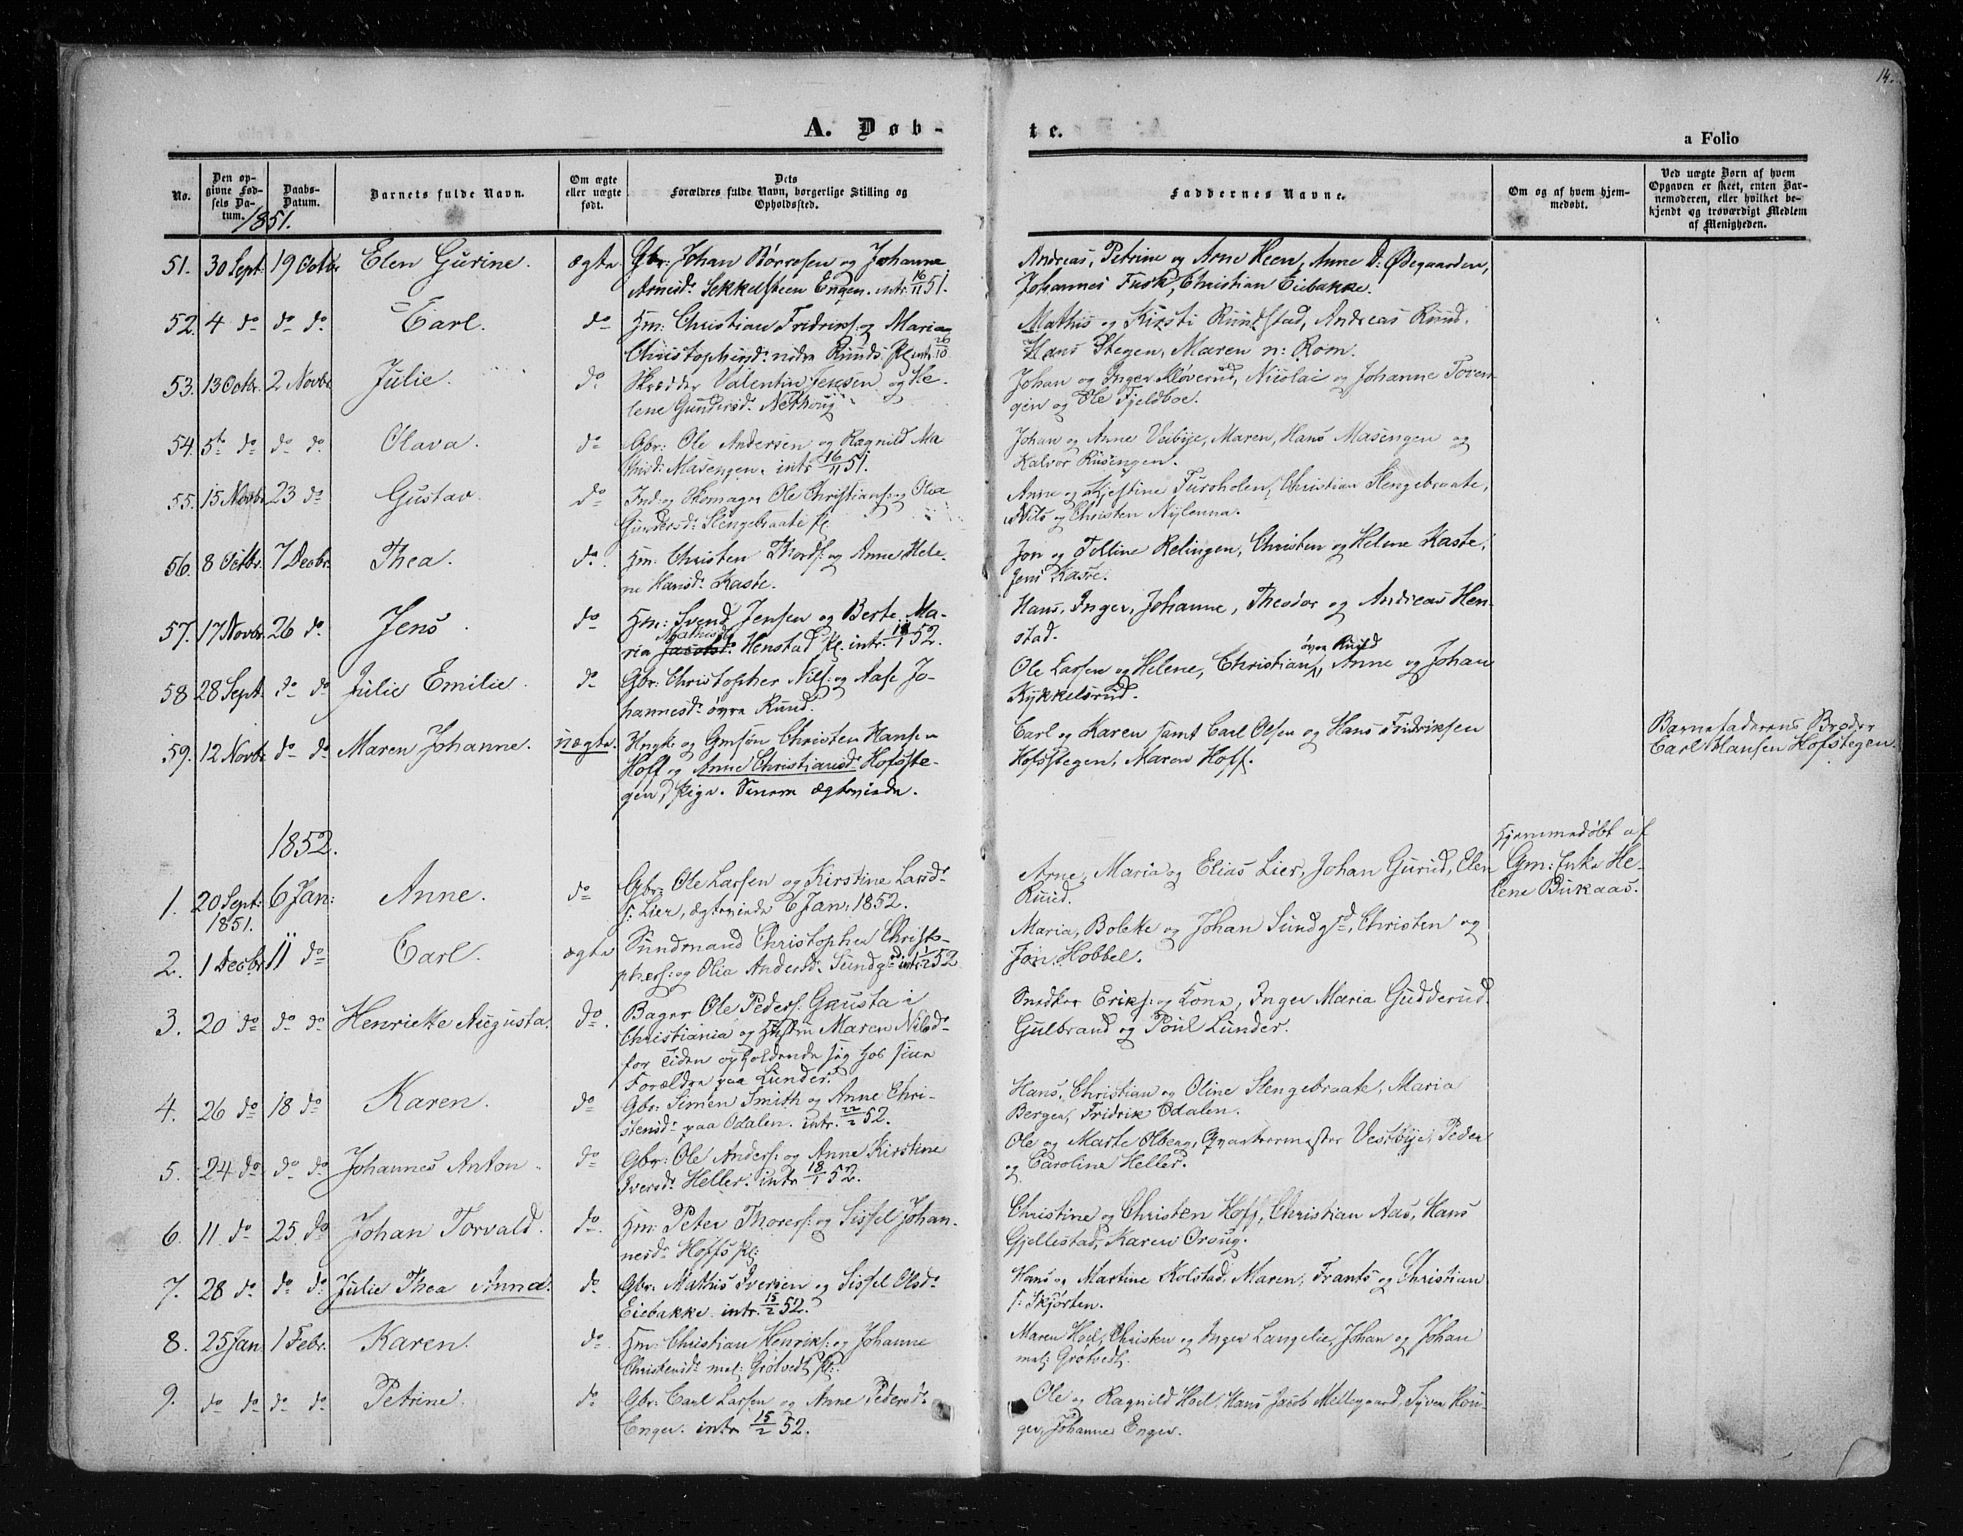 14.
A. Døb-
te.
a Folio
No.
Den op-
givne Fød-
sels Da-
tum.
Daabs-
Datum.
Barnets fulde Navn.
Om ægte
eller uægte
født.
Dets
Forældres fulde Navn, borgerlige Stilling og
Opholdssted.
Faddernes Navne.
Om og af hvem hjem-
medøbt.
Ved uægte Børn af hvem
Opgaven er skeet, enten Bar-
nemoderen, eller hvilket be-
kjendt og troværdigt Medlem
af Menigheden.
1851.
51. 30 Sept 19 Octbr Elen Gurine. ægte Gbr: Johan Børresen og Johanne
Arnesd: Sekkelsteen Engen. intr. 16/11 51.
Andreas, Petrine og Arne Heen, Anne D: Ødegaarden,
Johannes Fusk, Christian Eiebakke.
52. 4 do do do Carl. do Hm: Christian Fridriks: og Maria
Christophersd: nedre Ruuds Pl intr 26/10
Mathis og Kirsti Rundstad, Andreas Ruud.
Hans Stegen, Maren n: Rom.
53. 13 Octbr. 2 Novbr Julie. do Skrædder Valentin Jensen og He-
lene Gundersd: Nethoug
Johan og Inger Kløverud, Nicolai og Johanne Toven-
gen og Ole Fjeldboe.
54. 5te do do do Olava. do Gbr: Ole Andersen og Ragnild Ma
thisd: Masengen. intr 16/11 51.
Johan og Anne Veibye, Maren, Hans Masengen og
Halvor Rusengen.
55. 15 Novbr 23 do Gustav. do Ind: og Skomager Ole Christians: og Olea
Gundersd: Slengebraate pl
Anne og Kjestine Furoholen, Christian Slengebraate,
Nils og Christen Nylenna.
56. 8 Octbr. 7 Decbr. Thea. do. Hm: Christen Thords: og Anne Hele-
ne Hansd: Kaste.
Jon og Tolline Relingen, Christen og Helene Kaste,
Jens Kaste.
57. 17 Novbr. 26 do Jens. do Hm: Svend Jensen og Berte Ma-
Mathisd
ria Jacobsd: Henstad Pl. intr. 52.
Hans, Inger, Johanne, Theodor og Andreas Hen-
stad.
58 28 Sept. do do Julie Emilie. do Gbr: Christopher Nils: og Aase Jo-
hannesd: øvre Ruud.
øvre Ruud
Ole Larsen og Helene, Christian, Anne og Johan
Kykkelsrud.
59. 12 Novbr do do Maren Johanne. uægte. Ungk: og Gmsøn Christen Hansen
Hoff og Anne Christiansd: Hofsste-
gen, Pige. Senere ægteviede.
Carl og Karen samt Carl Olsen og Hans Fridriksen
Hofsstegen, Maren Hoff.
Barnefaderens Broder
Carl Hansen Hofstegen.
1852.
1. 20 Sept: 1851. 6 Jan: Anne. do Gbr: Ole Larsen og Kirstine Larsd:
s: Lier, ægteviede 6 Jan: 1852.
Arne, Maria og Elias Lier, Johan Gurud, Elen
Ruud.
Hjemmedøbt af
Gm: Enke He-
lene Bukaas.
2. 1 Decbr 11 do Carl. ægte Sundmand Christopher Christo-
phers: og Olia Andersd: Sundgsd intr. 52
Maria, Bolette og Johan Sundgsd, Christen og
Jon Hobbel.
3. 20 do do do Henriette Augusta. do. Bager Ole Peders: Gausta i
Christiania og Hustru Maren Nilsd:
for Tiden opholdende sig hos sine
Forældre paa Lunder.
Snedker Eriks: og Kone, Inger Maria Gudderud.
Gulbrand og Poul Lunder.
4. 26 do 18 do Karen. do Gbr: Simen Smith og Anne Chri-
stensd: paa Odalen. intr. 22/2 52.
Hans, Christian og Oline Slengebraate, Maria
Bergen, Fridrik Odalen.
5. 24 do do do Johannes Anton. do Gbr: Ole Anders: og Anne Kirstine
Iversd: Heller. intr 18/1 52.
Ole og Marte Olberg, Qvartermester Vestbye, Peder
og Caroline Heller.
6. 11 do 25 do Johan Torvald. do. Hm: Peter Thorers: og Sissel Johan-
nesd: Hoffs pl:
Christine og Christen Hoff, Christian Aas, Hans
Gjellestad, Karen Oroug.
7. 28 do do do Julie Thea Annæ. do Gbr. Mathis Iversen og Sissel Olsd:
Eiebakke. intr. 15/2 52.
Hans og Martine Kolstad, Maren, Frants og Christian
s: Skjørten.
8. 25 Jan 1 Febr. Karen. do Hm: Christian Henriks: og Johanne
Christensd: mel: Grøtvedt pl:
Maren Hoel, Christen og Inger Langelie, Johan og Johan
mel: Grøtvedt.
9. do do do do Petrine. do Gbr: Carl Larsen og Anne Pedersd:
Enger. intr 15/2 52.
Ole og Ragnild Hoel, Hans Jacob Millegaard, Syver Hou-
ger, Johanne Enger.